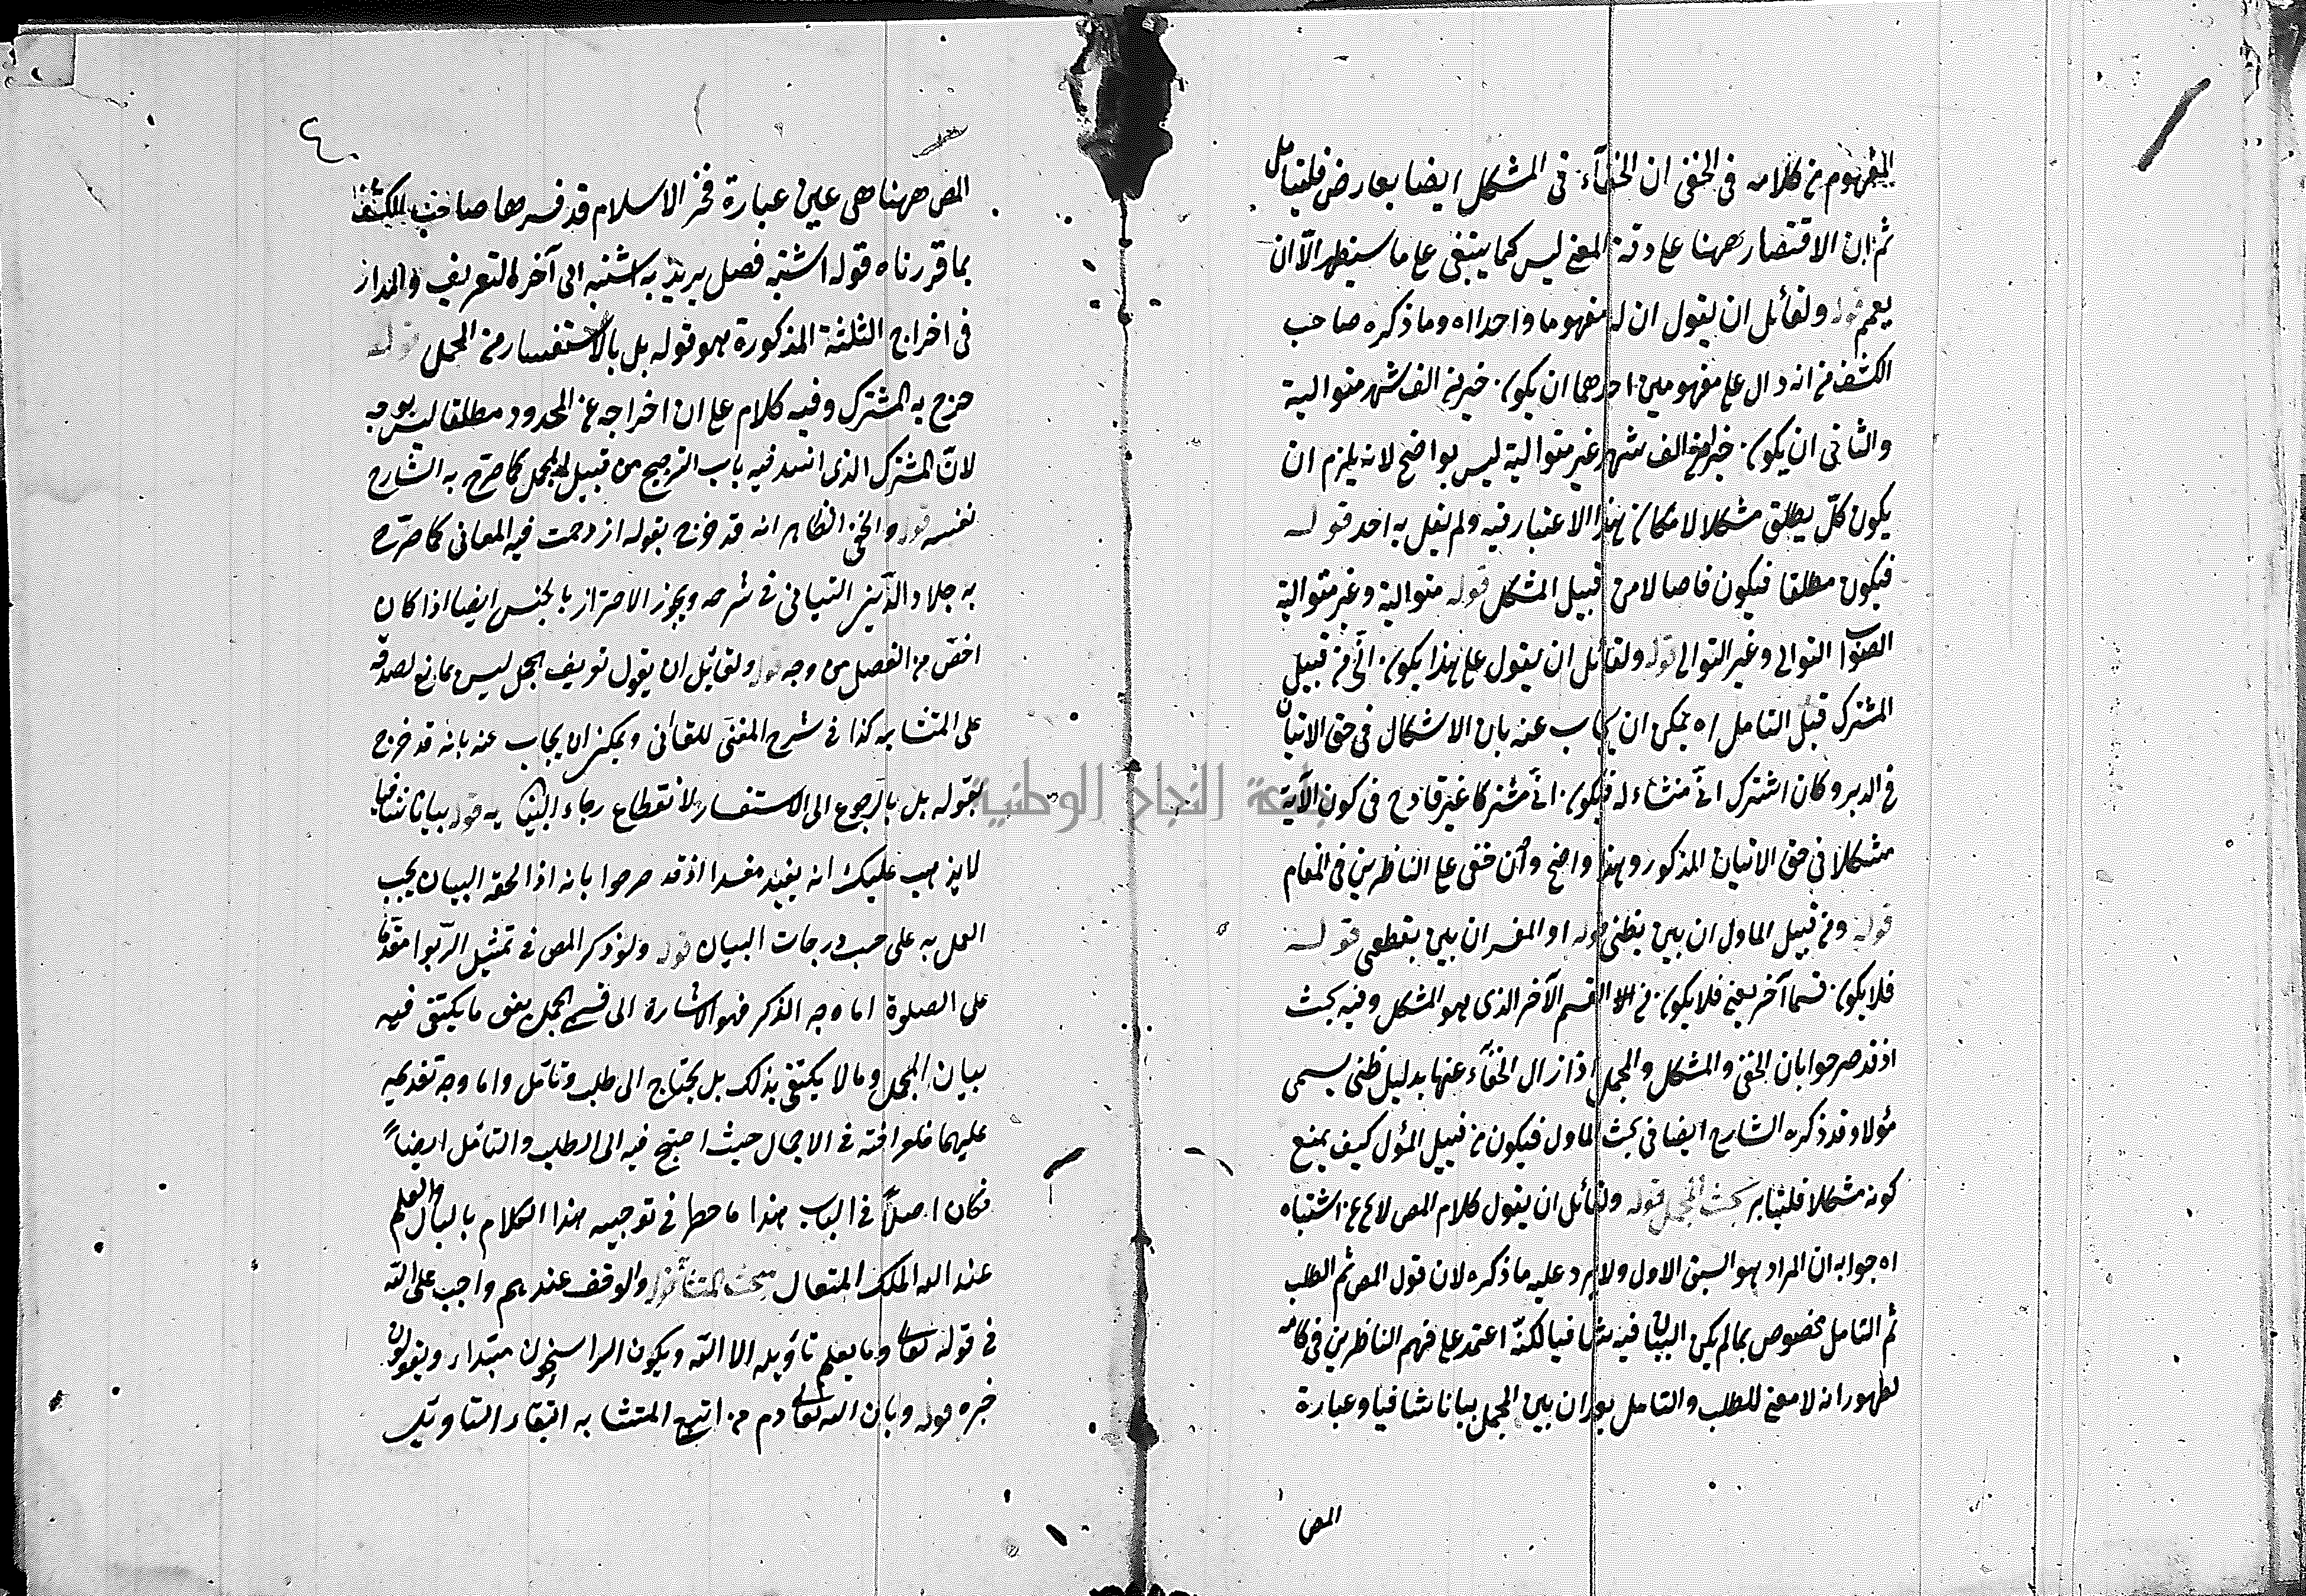 المفهوم من كلامه فى الخفى ان الخفآء فى المشكل ايضا بعارض فليتامل
ثم ان الاقتصار ههنا على دقة المعنى ليس كما ينبغى على ما سيظهر الّا ان
يعمم قوله ولقائل ان يقول ان له مفهوما واحدا اه وما ذكره صاحب
الكشف من انه دال على مفهومين احدهما ان يكون خير من الف شهر متوالية
والثانى ان يكون خيرا من الف شهر غير متوالية ليس بواضح لانه يلزم ان
يكون كلّ مطلق مشكلا لامكان هذا الاعتبار فيه ولم يقل به احد قوله
فيكون مطلقا فيكون خاصا لا من قبيل المشكل قوله متوالية وغير متوالية
الصواب التوالى وغير التوالى قوله ولقائل ان يقول على هذا يكون انّى من قبيل
المشترك قبل التامل اه يمكن ان يجاب عنه بان الاشكال فى حق الاتيان
فى الدبر وكان اشترك انّى منشاء له فيكون انّى مشتركا غير قادح فى كون الآية
مشكلا فى حق الاتيان المذكور وهذا واضح وان خفى على الناظرين فى المقام
قوله ومن قبيل الماول ان بين بظنى قوله او المفسر ان بين بقطعى قوله
فلا يكون قسما آخر يعنى فلا يكون من القسم الآخر الذى هو المشكل وفيه بحث
اذ قد صرحوا بان الخفى والمشكل والمجمل اذا زال الخفآء عنها بدليل ظنى يسمى
مؤلا وقد ذكره الشارح ايضا فى بحث الماول فيكون من قبيل المؤل كيف يمنع
كونه مشكلا فليتدبر بحث المجمل قوله ولقائل ان يقول كلام المص لا يخ عن اشتباه
اه جوابه ان المراد هو السبق الاول ولا يرد عليه ما ذكره لان قول المص ثم الطلب
ثم التامل مخصوص بما لم يكن البيان فيه شافيا لكنّه اعتمد على فهم الناظرين فى كلامه
لظهور انه لا معنى للطلب والتامل بعد ان بين المجمل بيانا شافيا وعبارة
المص
٤
المص ههنا هى عين عبارة فخر الاسلام قد فسرها صاحب الكشف
بما قررناه قوله اشتبه فصل يريد به اشتبه الى آخر التعريف والمدار
فى اخراج الثلثة المذكورة هو قوله بل بالاستفسار من المجمل قوله
خرج به المشترك وفيه كلام على ان اخراجه عن المحدود مطلقا ليس بوجه
لانّ المشترك الذى انسد فيه باب الترجيح من قبيل المجمل كما صرّح به الشارح
نفسه قوله والخفى الظاهر انه قد خرج بقوله ازدحمت فيه المعانى كما صرّح
به جلاد الدّين التبانى فى شرحه ويجوز الاحتراز بالجنس ايضا اذا كان
اخصّ من الفصل من وجه قوله ولقائل ان يقول تعريف المجمل ليس بمانع لصدقه
على المتشابه كذا فى شرح المغنى للقاآنى ويمكن ان يجاب عنه بانه قد خرج
بقوله بل بالرجوع الى الاستفسار لانقطاع رجاء البيان فيه قوله بيانا شافيا
لا يذهب عليك انه يفيد مفسدا اذ قد صرحوا بانه اذا لحقه البيان يجب
العمل به على حسب درجات البيان قوله ولو ذكر المص فى تمثيل الربوا مقدما
على الصلوة اما وجه الذكر فهو الاشارة الى قسمى المجمل يعنى ما يكتفى فيه
بيان المجمل وما لا يكتفى بذلك بل يحتاج الى طلب وتامّل واما وجه تقديمه
عليهما فلعراقته فى الاجمال حيث احتيج فيه الى الطلب والتامّل ايضاً
فكان اصلًا فى الباب هذا ما خطر فى توجيه هذا الكلام بالبال والعلم
عند الله الملك المتعال مبحث المتشابه قوله والوقف عندهم واجب على الله
فى قوله تعالى وما يعلم تاويله الا الله ويكون الراسخون مبتداء ويقولون
خبره قوله وبان الله تعالى ذم من اتبع المتشابه ابتغاء التاويل
جامعة النجاح الوطنية